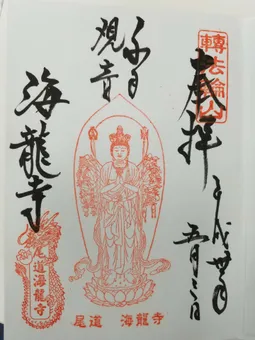 轉法輪山
奉拝
平成卅年
五月
千手
観音
海龍寺
尾道海龍寺
尾道 海龍寺